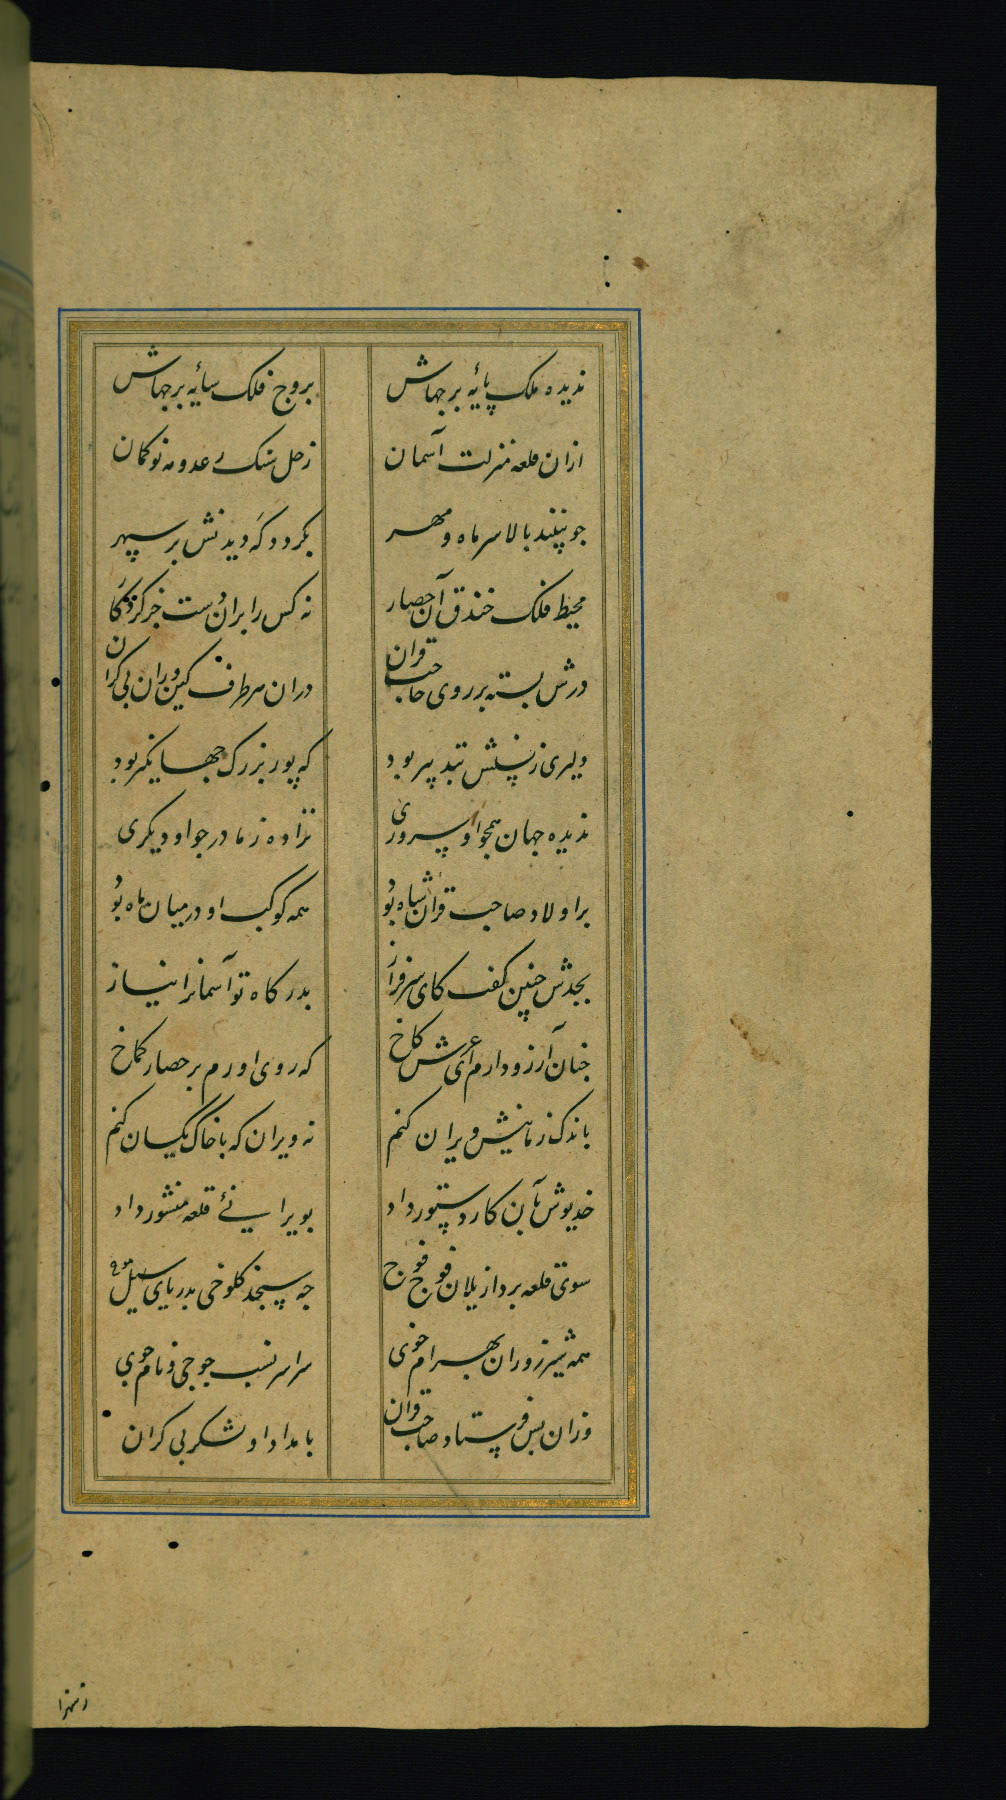 ندیده ملک پایهٔ برجهاش بروج فلک سایهٔ برجهاش
ازان قلعه منزلت آسمان زحل سنک عدو مه نو کمان
جو بینند بالاسر ماه و مهر بکردد که دیدنش بر سپهر
محیط فلک خندق آن حصار نه کس را بران دست جز کردکار
درش بسته بر روی صاحب قران دران هر طرف کین وران بی کران
دلیری ز پشتش تبدپیر بود که پور بزرک جهانکیر بود
ندیده جهان همجو او سروری نزاده ز مادر جو او دیکری
بر اولاد صاحب قران شاه بود همه کوکب او در میان ماه بود
بجدش جنین کفت کای سرفراز بدرکاه تو آسمانرا نیاز
جنان آرزو دارم ای عرش کاخ که روی اورم بر حصار کماخ
باندک زمانیش ویران کنم نه ویران که با خاک یکسان کنم
خدیوش بآن کار دستور داد بویرانئ قلعه منشور داد
سوی قلعه برد از یلان فوج فوج جه سنجد کلوخی بدریای سیل موج
همه شیرزوران بهرام خوی سراسر نسب جوجی و نام جوی
وزان پس فرستاد صاحب قران بامداد او لشکر بی کران